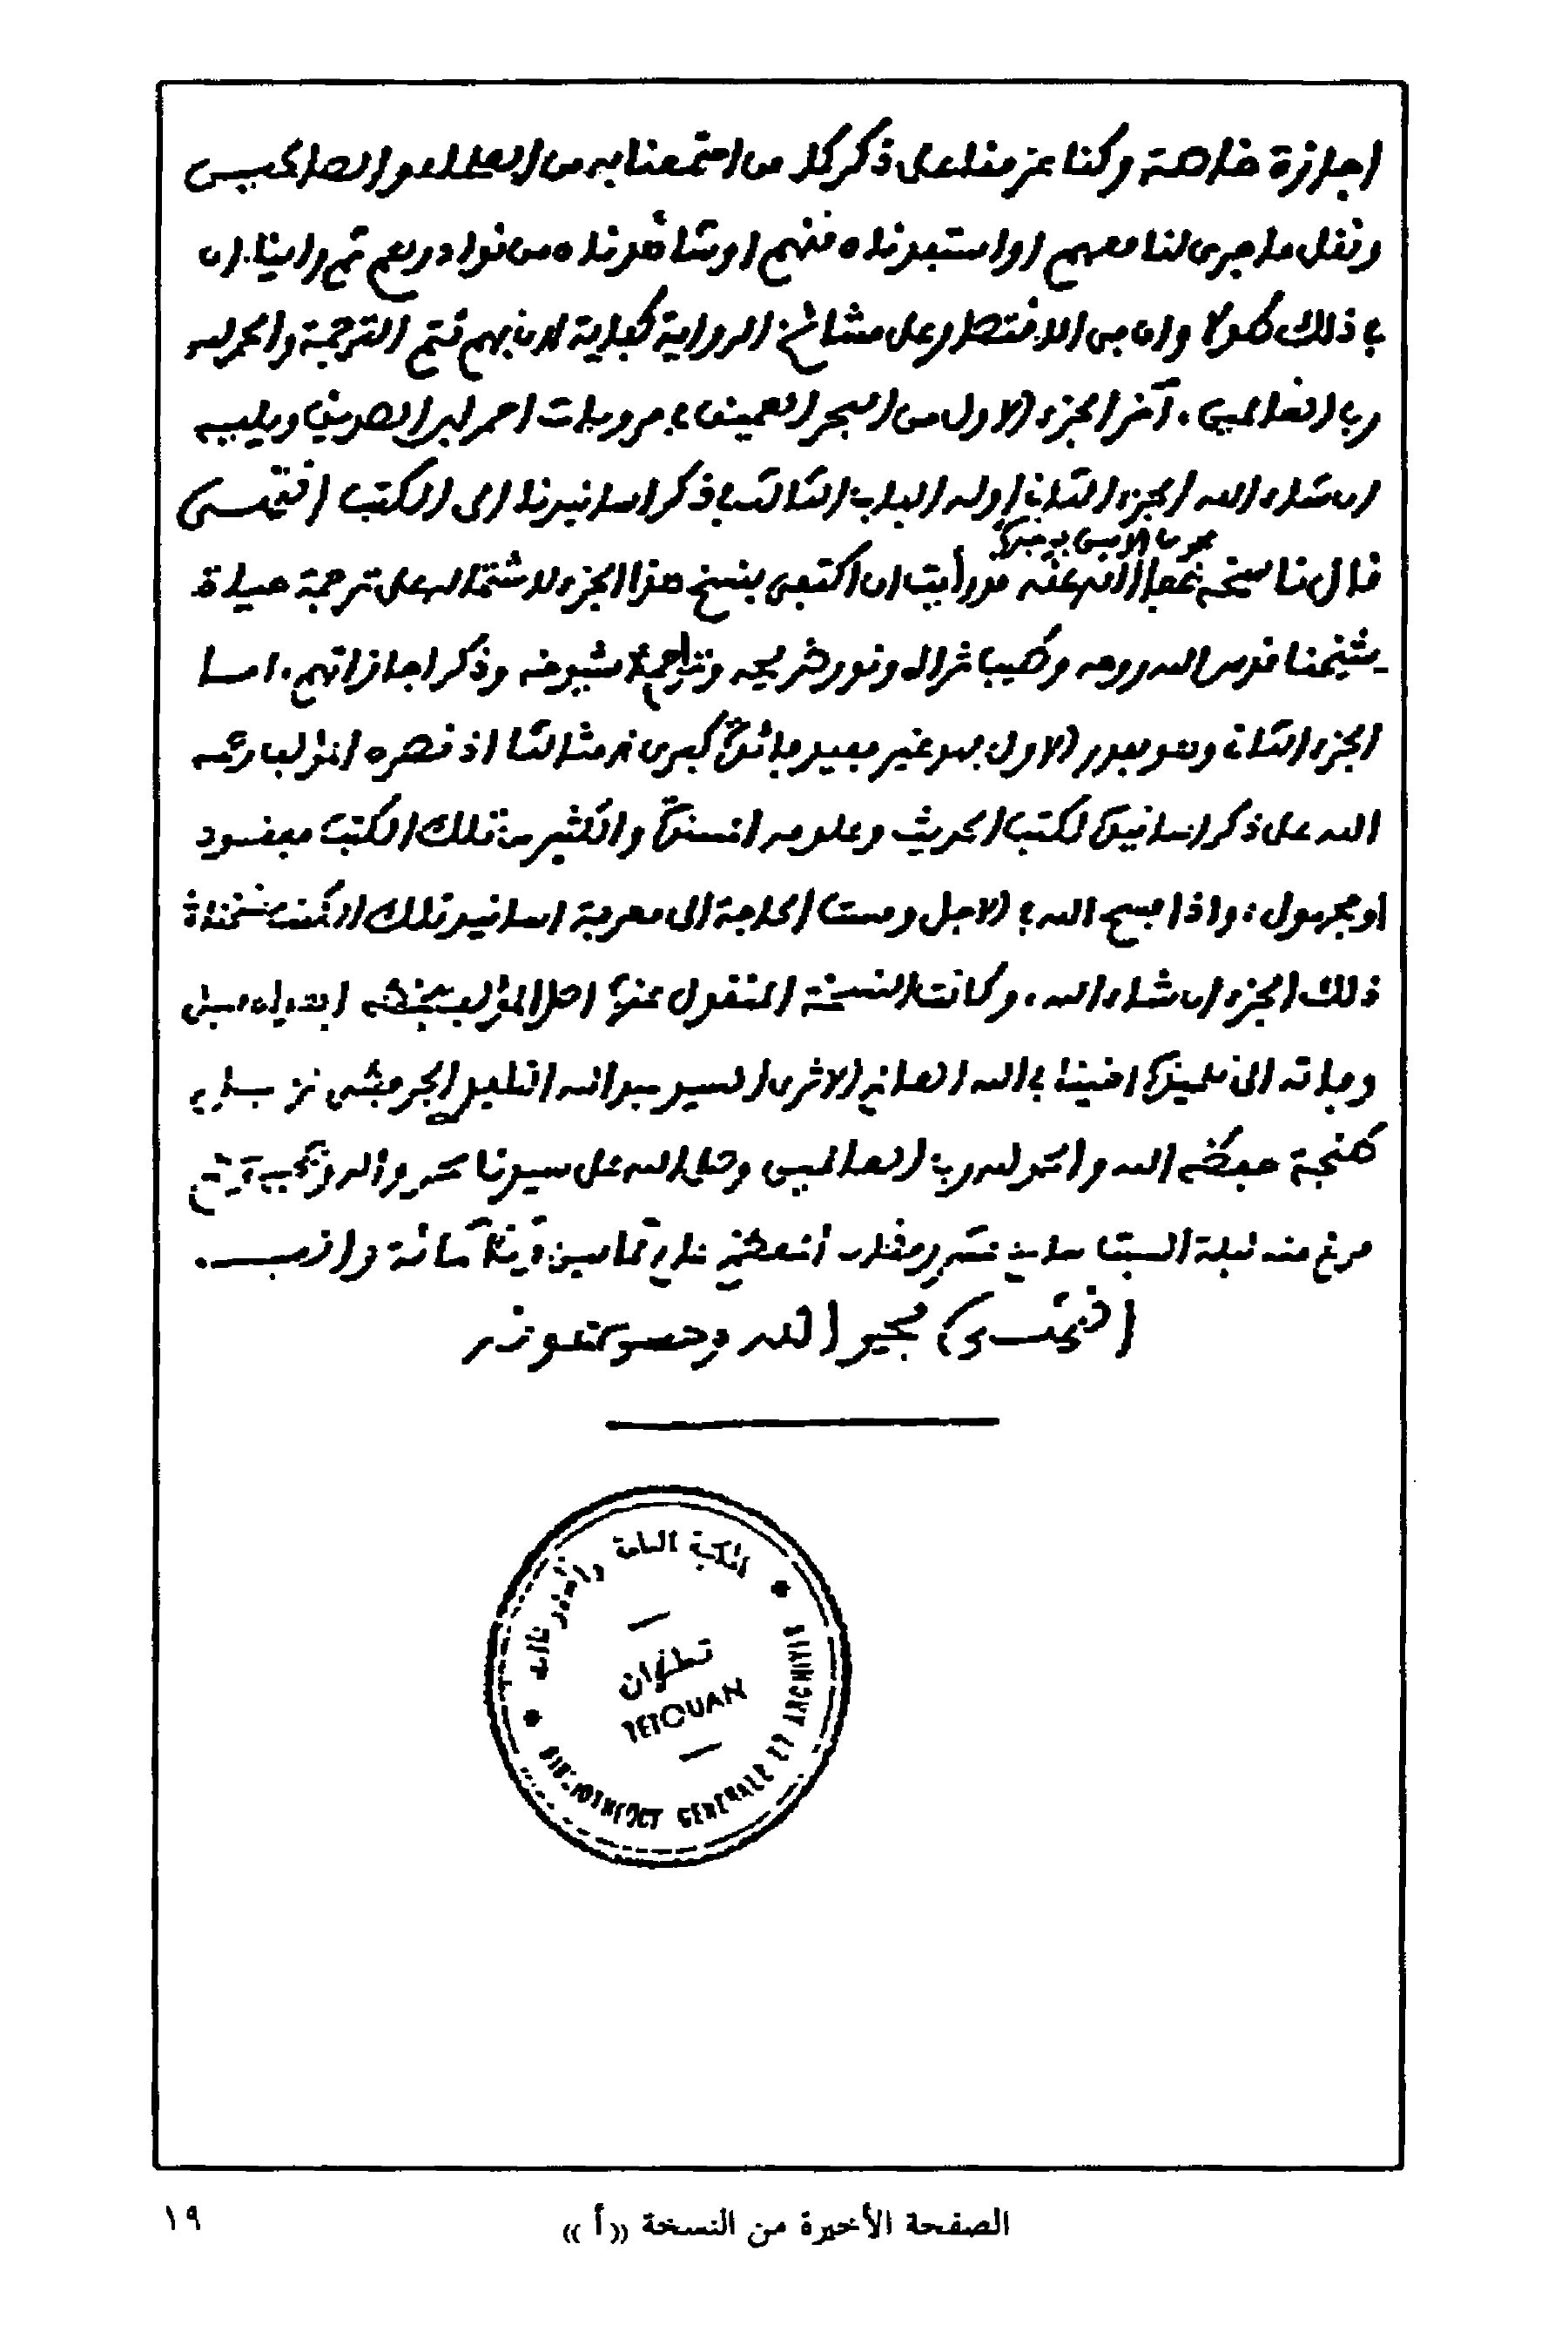 اجازة خاصة وكنا عزمنا على ذكر كل من اجتمعنا به من العلماء والصالحيين
ونقل ما جرى لنا معهم او استفدناه منهم او شاهدناه من نوادرهم ثم راينا ان
في ذلك طولا وان في الاقتصار على مشائخ الرواية كفاية لان بهم تتم الترجمة والحمد لله
رب العالمين . آخر الجزء الاول من البحر العميق في مرويات احمد ابن الصديق ويليه
ان شاء الله الجزء الثاني اوله الباب الثالث في ذكر اسانيدنا الى الكتب انتهى
محمد الامين بوخبزة
قال ناسخه عفا الله عنه قد رأيت ان اكتفي بنسخ هذا الجزء لاشتماله على ترجمة حياة
شيخنا قدس الله روحه وطيب ثراه ونور ضريحه وتراجم شيوخه وذكر اجازاتهم . اما
الجزء الثاني وهو بقدر الاول فهو غير مفيد فائدة كبرى لامثالنا اذ قصره المؤلف رحمه
الله على ذكر اسانيد لكتب الحديث وعلوم السنة والكثير من تلك الكتب مفقود
او مجهول ، واذا فسح الله في الاجل ومست الحاجة الى معرفة اسانيد تلك الكتب نسخنا
ذلك الجزء ان شاء الله . وكانت النسخة المنقول عنها اصل المؤلف بخطه قبل
وفاته الى تلميذه اخينا في الله العالم الاثري السيد عبد الله التليدي
بطنجة حفظه الله والحمد لله رب العالمين وصلى الله على سيدنا محمد وآله وصحبه
فرغ منه ليلة السبت رمضان المعظم عام ثمانين وثلاثمائة والف .
انتهى بحمد الله وحسن عونه
المكتبة العامة والمحفوظات
تطوان
TETOUAN
BIBLIOTHEQUE GENERALE ET ARCHIVES
الصفحة الأخيرة من النسخة «أ»
١٩